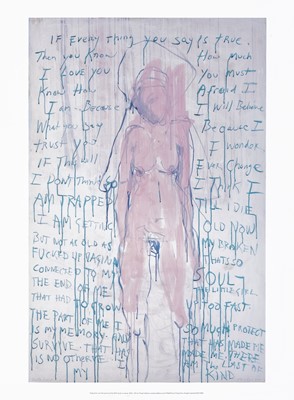 IF EVERY thing you say is true.
Then you Know How much
I Love you You must
Know How Afraid I
I am. Because I Will Believe
What you say Because I
trust you I Wonder
IF This Will Ever Change
I DON'T THINK SO I Think I
AM TRAPPED I'LL DIE
I AM GETTING OLD NOW
BUT NOT AS OLD AS MY BROKEN
FUCKED UP VAGINA THATS SO
CONNECTED TO MY SOUL
THE END OF ME LITTLE GIRL
THAT HAD TO GROW UP TOO FAST
THE PART OF ME I SO MUCH PROTECT
IS MY MEMORY AND THAT HAS MADE ME
SURVIVE. THAT HAS MADE ME. THERE
IS NO OTHER. I AM THE LAST OF
MY KIND